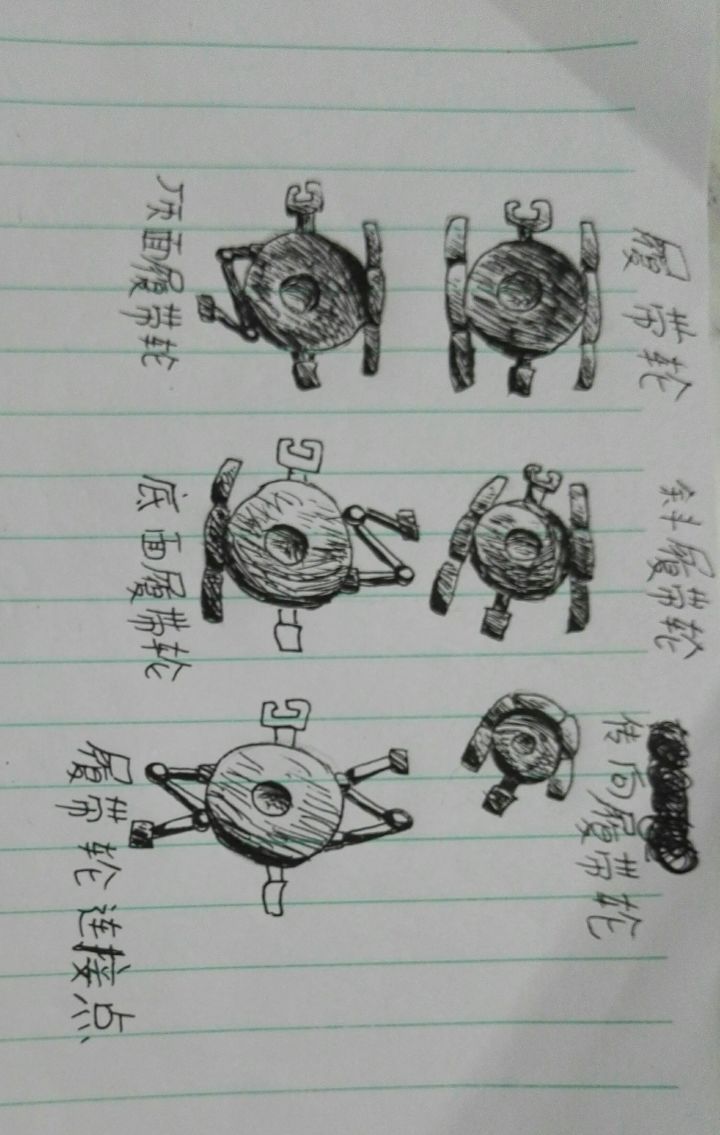 履带轮
斜履带轮
传向履带轮
顶面履带轮
底面履带轮
履带轮连接点